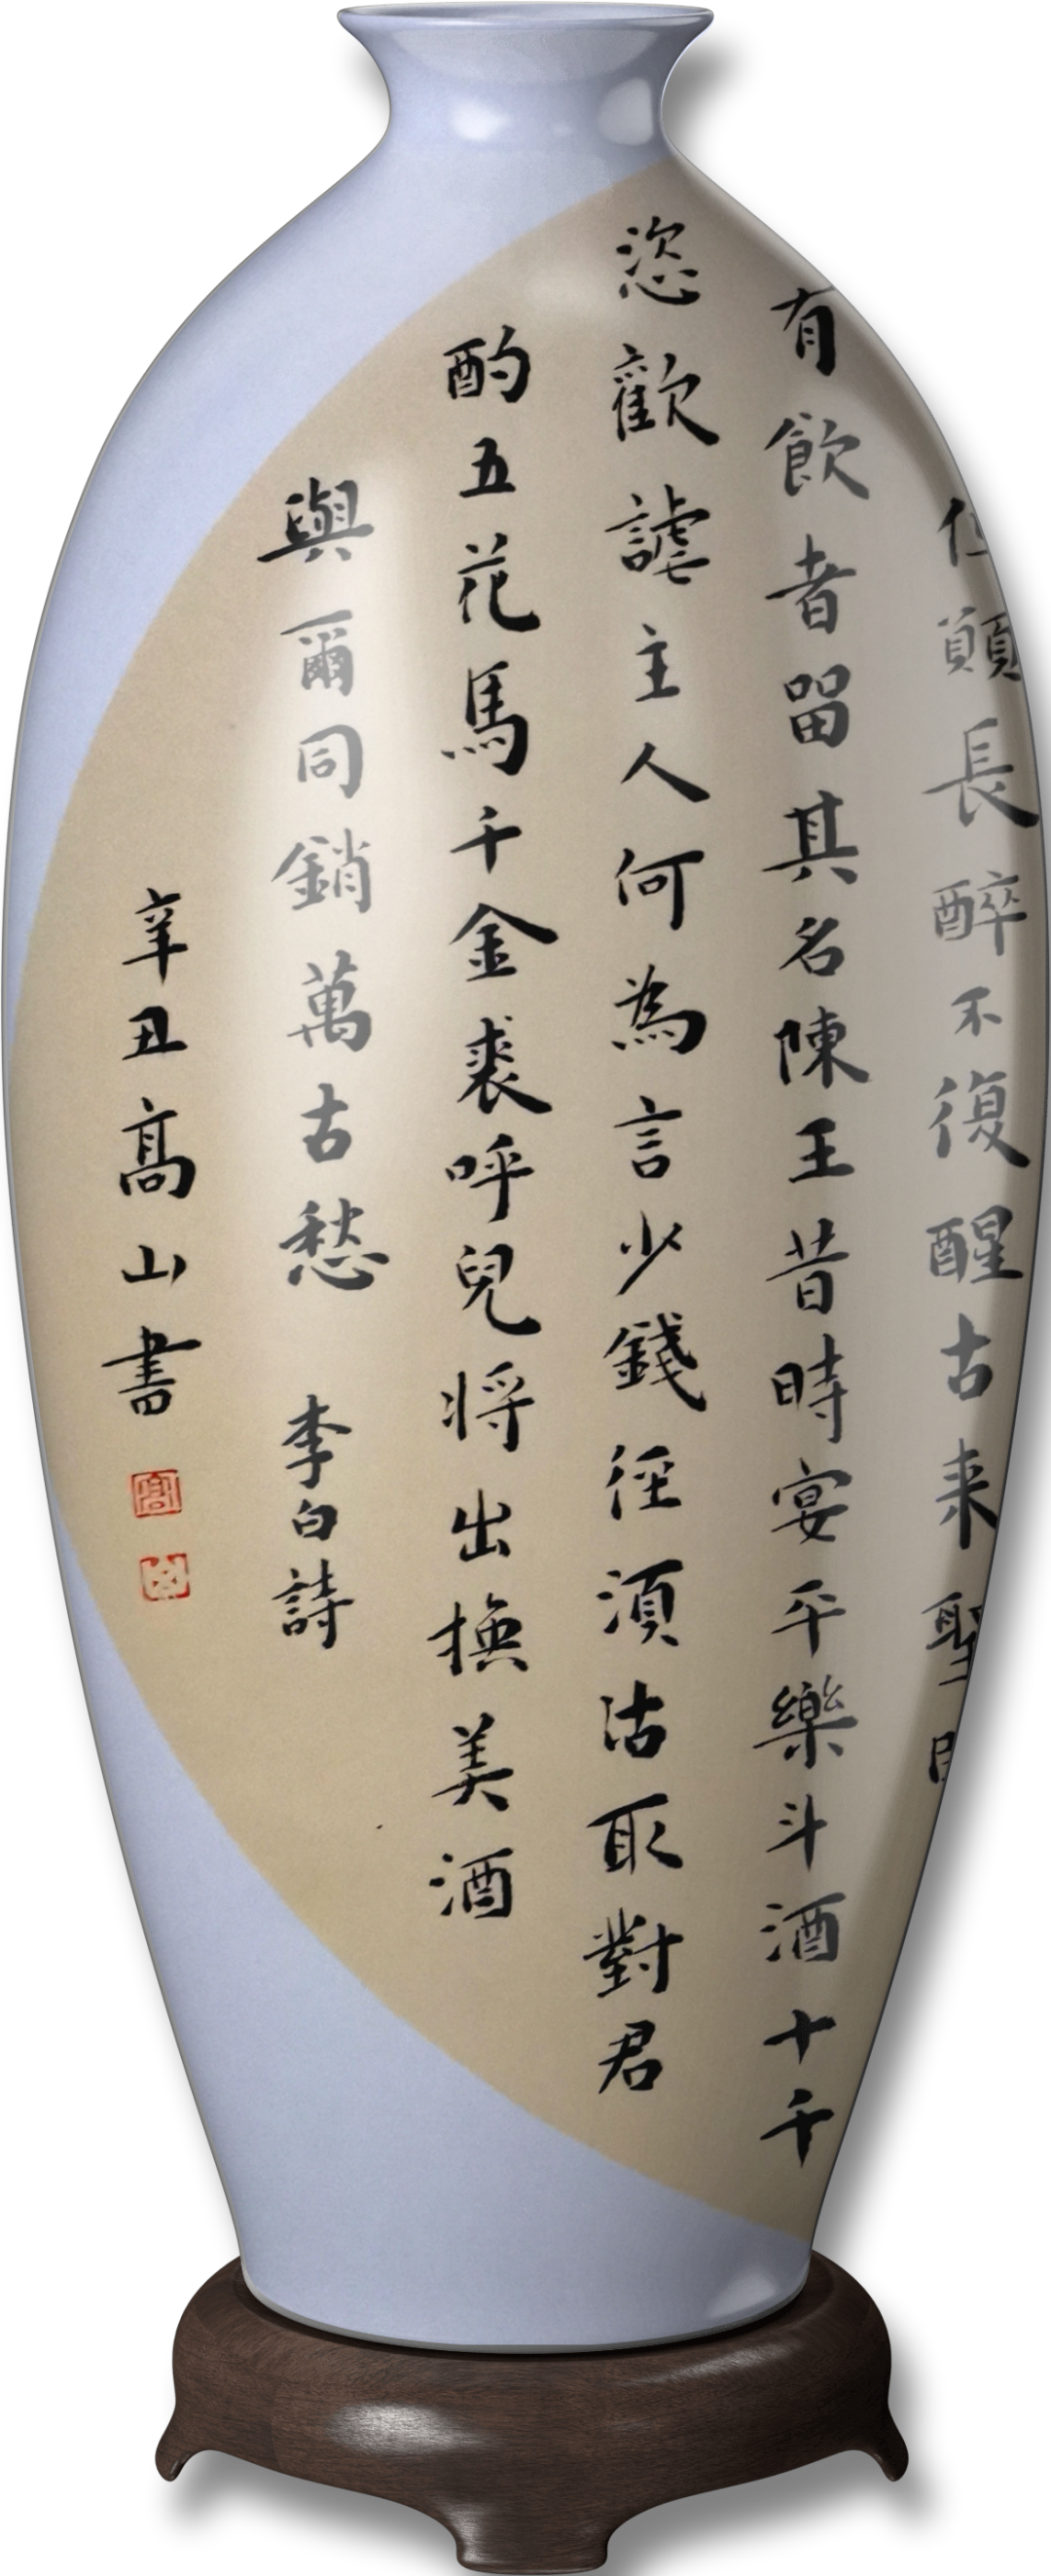 但願長醉不復醒古来聖
有飲者留其名陳王昔時宴平樂斗酒十千
恣歡謔主人何為言少錢徑須沽取對君
酌五花馬千金裘呼兒将出換美酒
與爾同銷萬古愁 李白詩
辛丑高山書